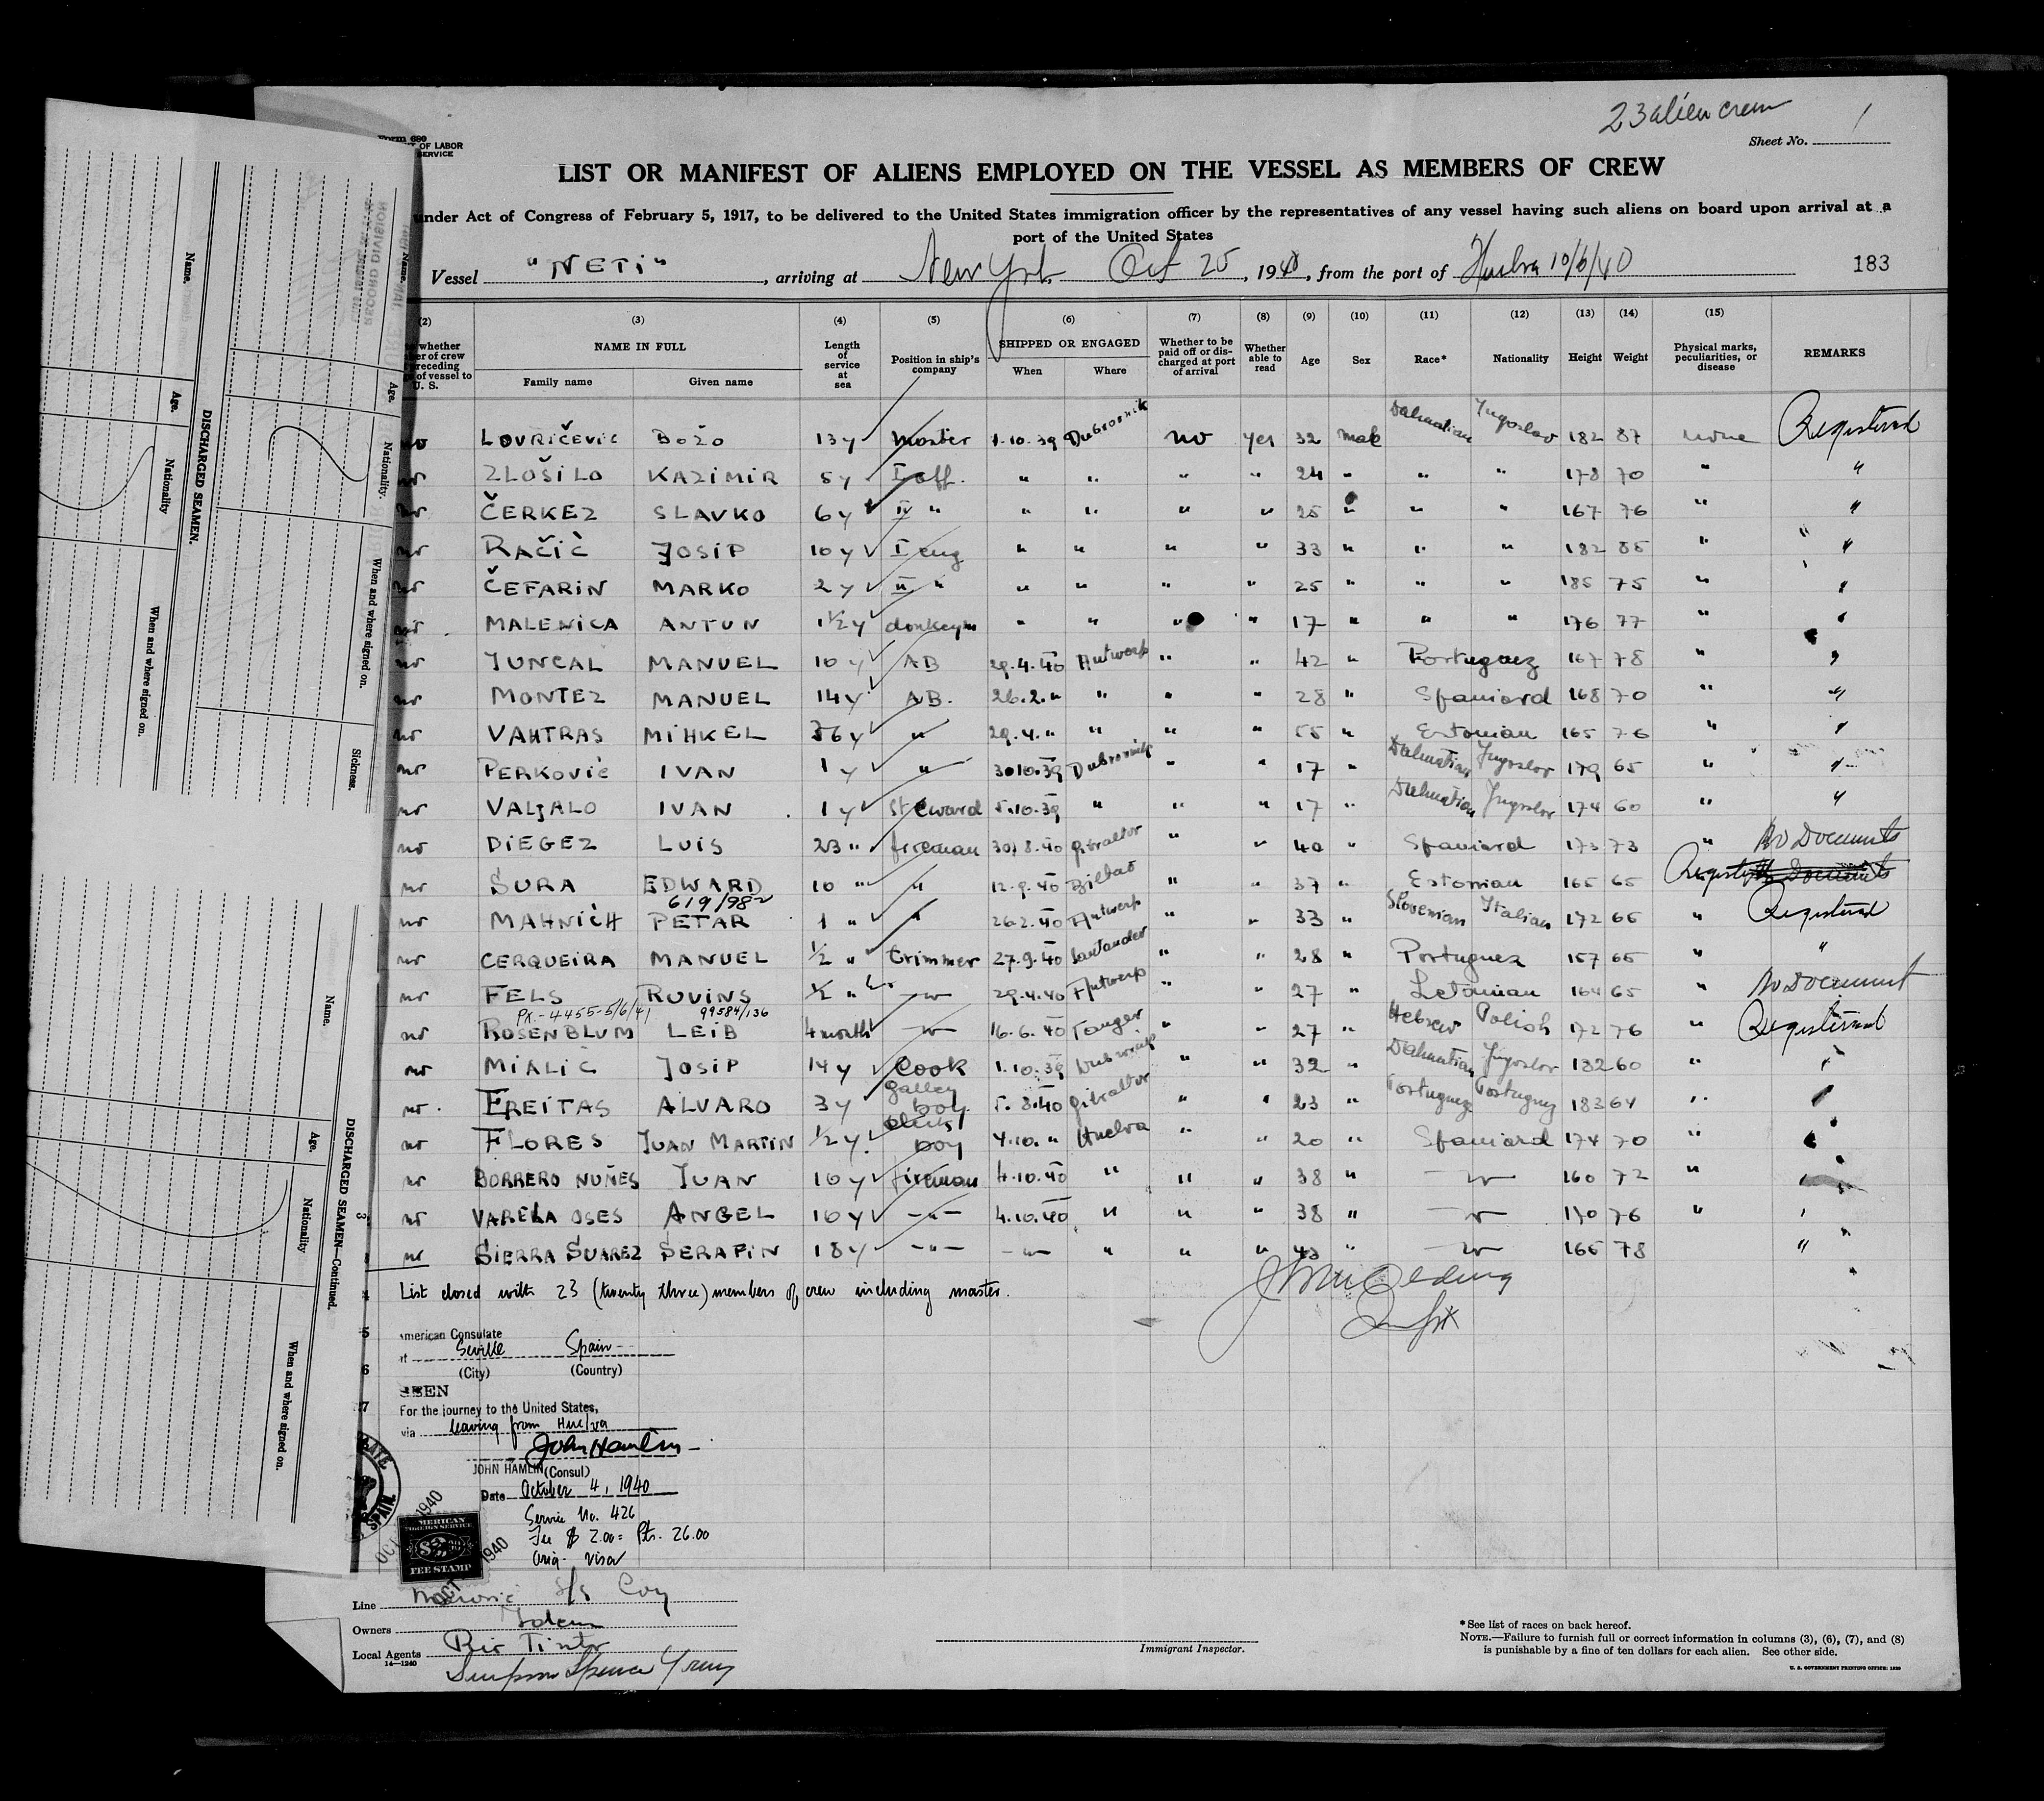 23 alien crew
Form 680
OF LABOR
SERVICE
Sheet No. 1
LIST OR MANIFEST OF ALIENS EMPLOYED ON THE VESSEL AS MEMBERS OF CREW
under Act of Congress of February 5, 1917, to be delivered to the United States immigration officer by the representatives of any vessel having such aliens on board upon arrival at a
port of the United States
Vessel "NETI", arriving at New York, Oct 25, 1940, from the port of Huelva 10/6/40 183
(2) (3) (4) (5) (6) (7) (8) (9) (10) (11) (12) (13) (14) (15)
whether
of crew
preceding
of vessel to
U. S.
NAME IN FULL
Family name Given name
Length of service at sea
Position in ship's company
SHIPPED OR ENGAGED
When Where
Whether to be paid off or discharged at port of arrival
Whether able to read
Age Sex Race* Nationality Height Weight
Physical marks, peculiarities, or disease
REMARKS
no LOVRIČEVIĆ BOŽO 13 y Master 1.10.39 Dubrovnik no yes 32 male Dalmatian Jugoslav 182 87 none Registered
no ZLOŠILO KAZIMIR 5 y I off. " " " " 24 " " " 178 70 " "
no ČERKEZ SLAVKO 6 y II " " " " " 25 " " " 167 76 " "
no RAČIĆ JOSIP 10 y I eng " " " " 33 " " " 182 85 " "
no ČEFARIN MARKO 2 y II " " " " " 25 " " " 185 75 " "
no MALENICA ANTUN 1 1/2 y donkeym " " " " 17 " " " 176 77 " "
no JUNCAL MANUEL 10 y AB 29.4.40 Antwerp " " 42 " Portuguez 167 78 " "
no MONTEZ MANUEL 14 y AB. 26.2. " " " " 28 " Spaniard 168 70 " "
no VAHTRAS MIHKEL 36 y " 29.4. " " " " 55 " Estonian 165 76 " "
no PERKOVIĆ IVAN 1 y " 30 10.39 Dubrovnik " " 17 " Dalmatian Jugoslav 179 65 " "
no VALJALO IVAN 1 y Steward 5.10.39 " " " 17 " Dalmatian Jugoslav 174 60 " "
no DIEGEZ LUIS 23 " fireman 30/8.40 Gibraltar " " 40 " Spaniard 173 73 " No Documents
no SURA EDWARD 10 " " 12.9.40 Bilbao " " 37 " Estonian 165 65 Registered No Documents
619/982
no MAHNICH PETAR 1 " " 26.2.40 Antwerp " " 33 " Slovenian Italian 172 66 " Registered
no CERQUEIRA MANUEL 1/2 " trimmer 27.9.40 Santander " " 28 " Portuguez 157 65 " "
no FELS ROVINS 1/2 " -"- 29.4.40 Antwerp " " 27 " Letonian 164 65 " No Document
PX.-4455-5/6/41 99584/136
no ROSENBLUM LEIB 4 month -"- 16.6.40 Tanger " " 27 " Hebrew Polish 172 76 " Registered
no MIALIĆ JOSIP 14 y Cook 1.10.39 Dubrovnik " " 32 " Dalmatian Jugoslav 182 60 " "
no FREITAS ALVARO 3 y galley boy 5.8.40 Gibraltar " " 23 " Portuguez Portuguez 183 64 " "
no FLORES JUAN MARTIN 1/2 y boy 4.10. " Huelva " " 20 " Spaniard 174 70 " "
no BORRERO NUÑES JUAN 10 y fireman 4.10.40 " " " 38 " -"- 160 72 " "
no VARELA OSES ANGEL 10 y -"- 4.10.40 " " " 38 " -"- 170 76 " "
no SIERRA SUAREZ SERAFIN 18 y -"- -"- " " " 43 " -"- 166 78 "
List closed with 23 (twenty three) members of crew including master.
American Consulate
at Seville Spain
(City) (Country)
SEEN
For the journey to the United States,
via leaving from Huelva
John Hamlin
JOHN HAMLIN (Consul)
Date October 4, 1940
Service No. 426
Fee $ 2.00 = Pts. 26.00
Orig. visa
AMERICAN
FOREIGN SERVICE
FEE STAMP
SPAIN
OCT 1940
Line S/S Coy
Owners Idem
Local Agents Rio Tinto
14—1240
Simpson Spence Young
Immigrant Inspector.
*See list of races on back hereof.
NOTE.—Failure to furnish full or correct information in columns (3), (6), (7), and (8)
is punishable by a fine of ten dollars for each alien. See other side.
U. S. GOVERNMENT PRINTING OFFICE: 1939
DISCHARGED SEAMEN.
Name. Age. Nationality When and where signed on.
Name. Age. Nationality. When and where signed on. Sickness.
RECORD DIVISION
DISCHARGED SEAMEN—Continued.
Name. Age. Nationality When and where signed on.